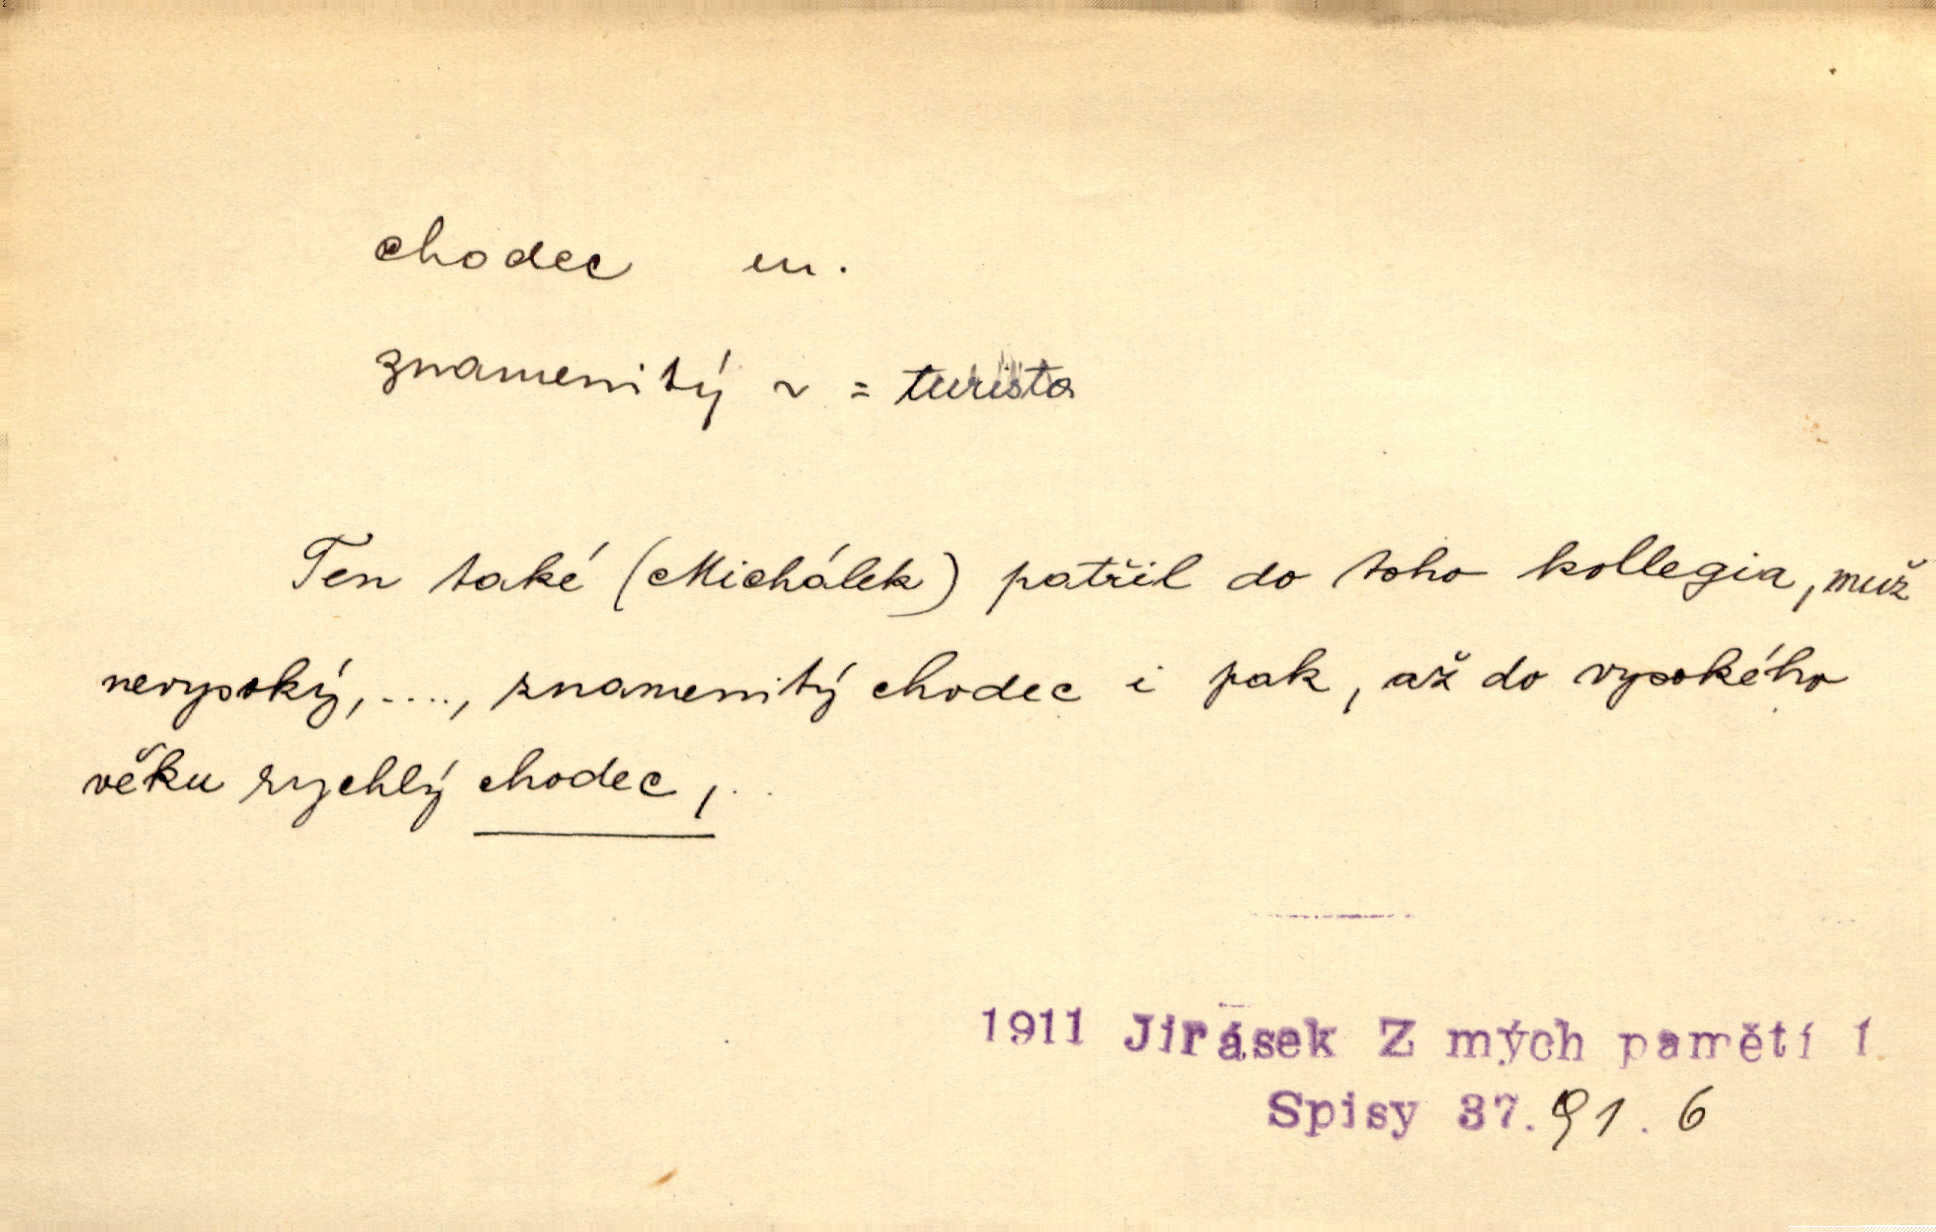 chodec m.
znamenitý ~ = turista
Ten také (Michálek) patřil do toho kollegia, muž
nevysoký, ...., znamenitý chodec i pak, až do vysokého
věku rychlý chodec, ..
1911 Jirásek Z mých pamětí 1
Spisy 37. 91. 6